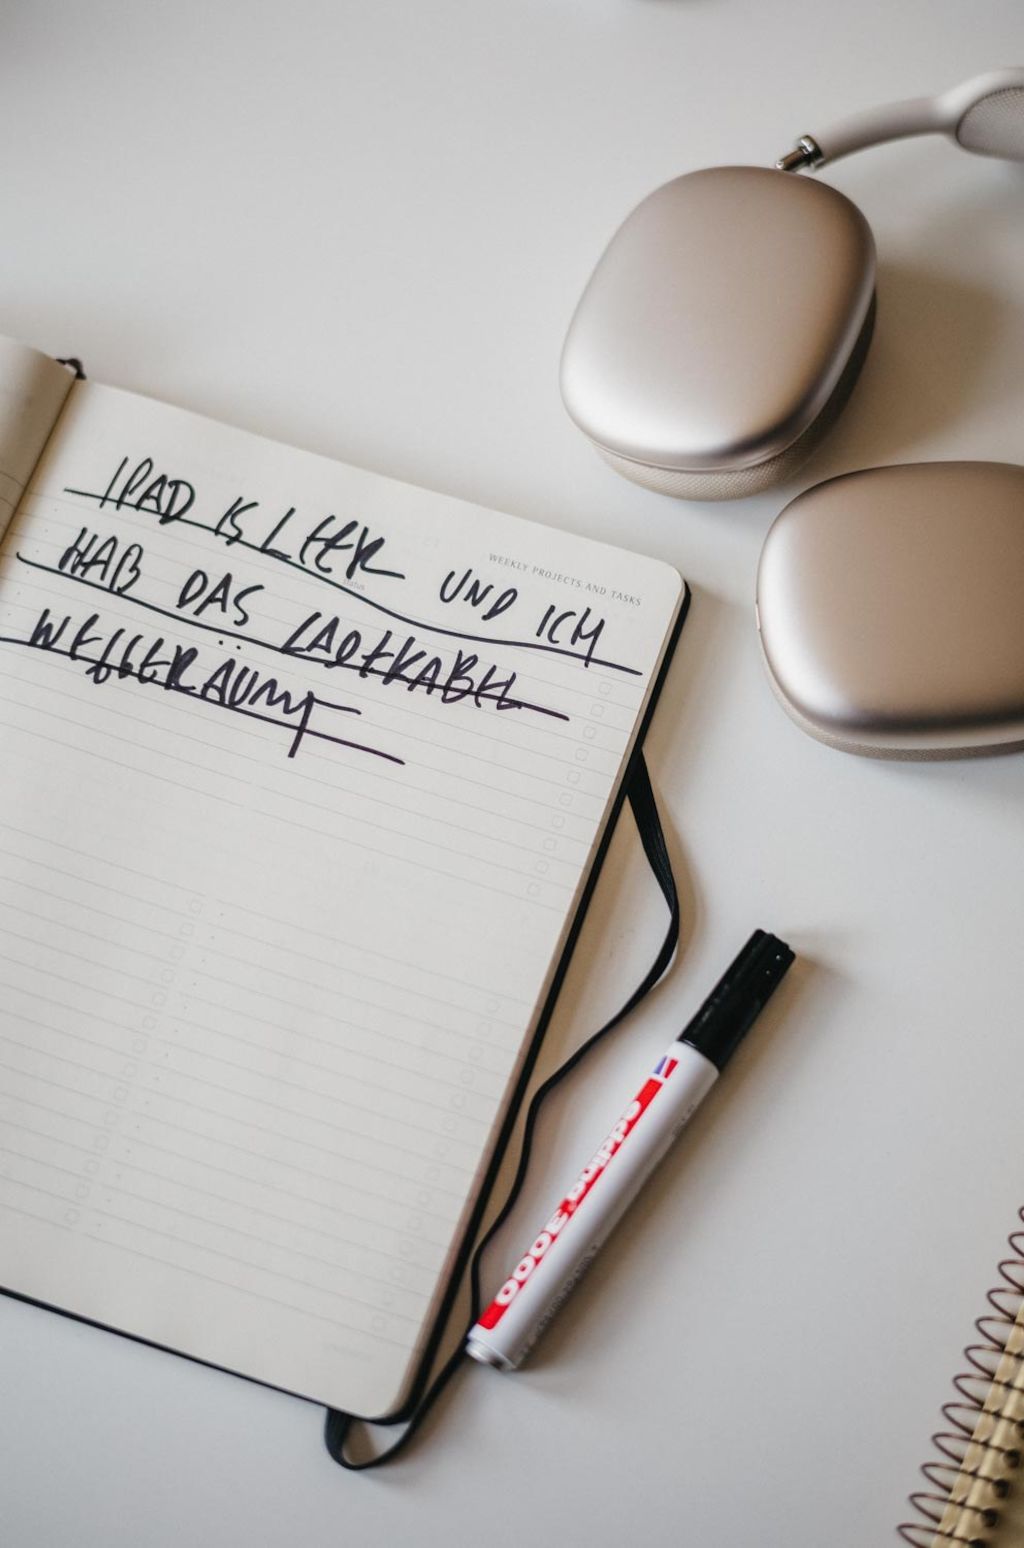 IPAD IS LEER UND ICH
HAB DAS LADEKABEL
WEGGERÄUMT
WEEKLY PROJECTS AND TASKS
Status
edding 3000